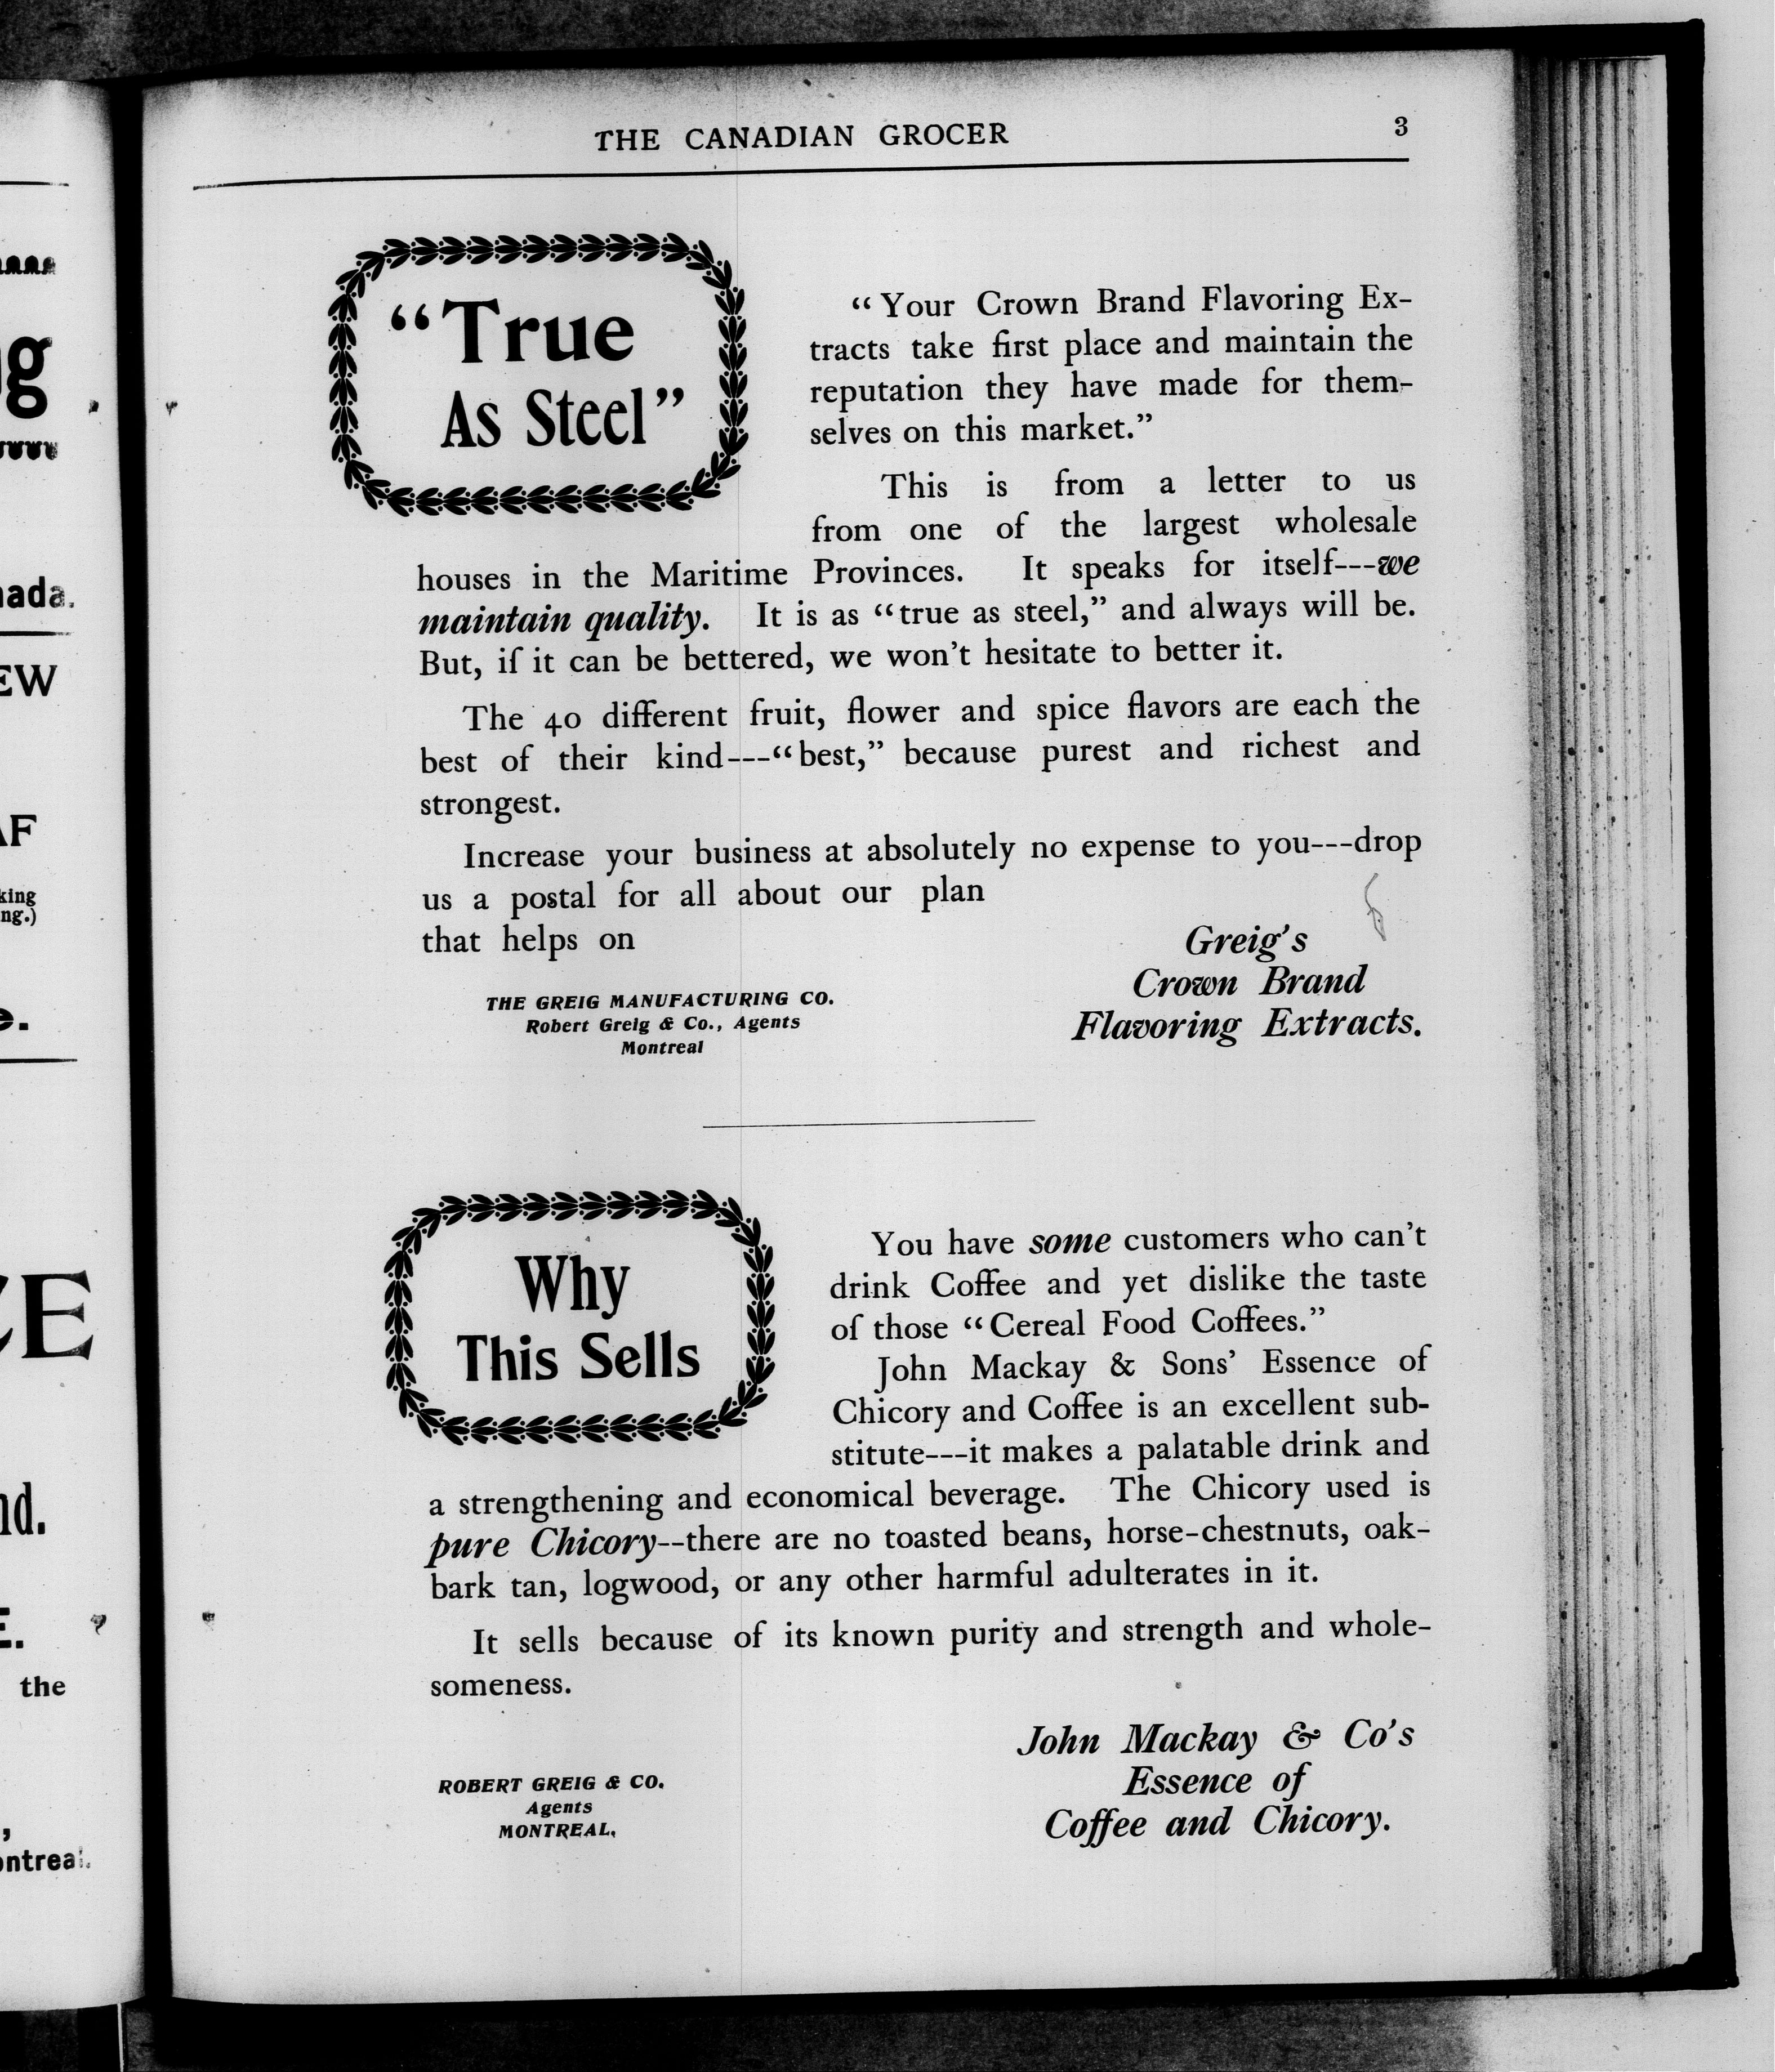 THE CANADIAN GROCER 3
“True
As Steel”
“Your Crown Brand Flavoring Ex-
tracts take first place and maintain the
reputation they have made for them-
selves on this market.”
This is from a letter to us
from one of the largest wholesale
houses in the Maritime Provinces. It speaks for itself---we
maintain quality. It is as “true as steel,” and always will be.
But, if it can be bettered, we won't hesitate to better it.
The 40 different fruit, flower and spice flavors are each the
best of their kind---“best,” because purest and richest and
strongest.
Increase your business at absolutely no expense to you---drop
us a postal for all about our plan
that helps on
Greig's
Crown Brand
Flavoring Extracts.
THE GREIG MANUFACTURING CO.
Robert Greig & Co., Agents
Montreal
Why
This Sells
You have some customers who can't
drink Coffee and yet dislike the taste
of those “Cereal Food Coffees.”
John Mackay & Sons' Essence of
Chicory and Coffee is an excellent sub-
stitute---it makes a palatable drink and
a strengthening and economical beverage. The Chicory used is
pure Chicory--there are no toasted beans, horse-chestnuts, oak-
bark tan, logwood, or any other harmful adulterates in it.
It sells because of its known purity and strength and whole-
someness.
John Mackay & Co's
Essence of
Coffee and Chicory.
ROBERT GREIG & CO.
Agents
MONTREAL,
the